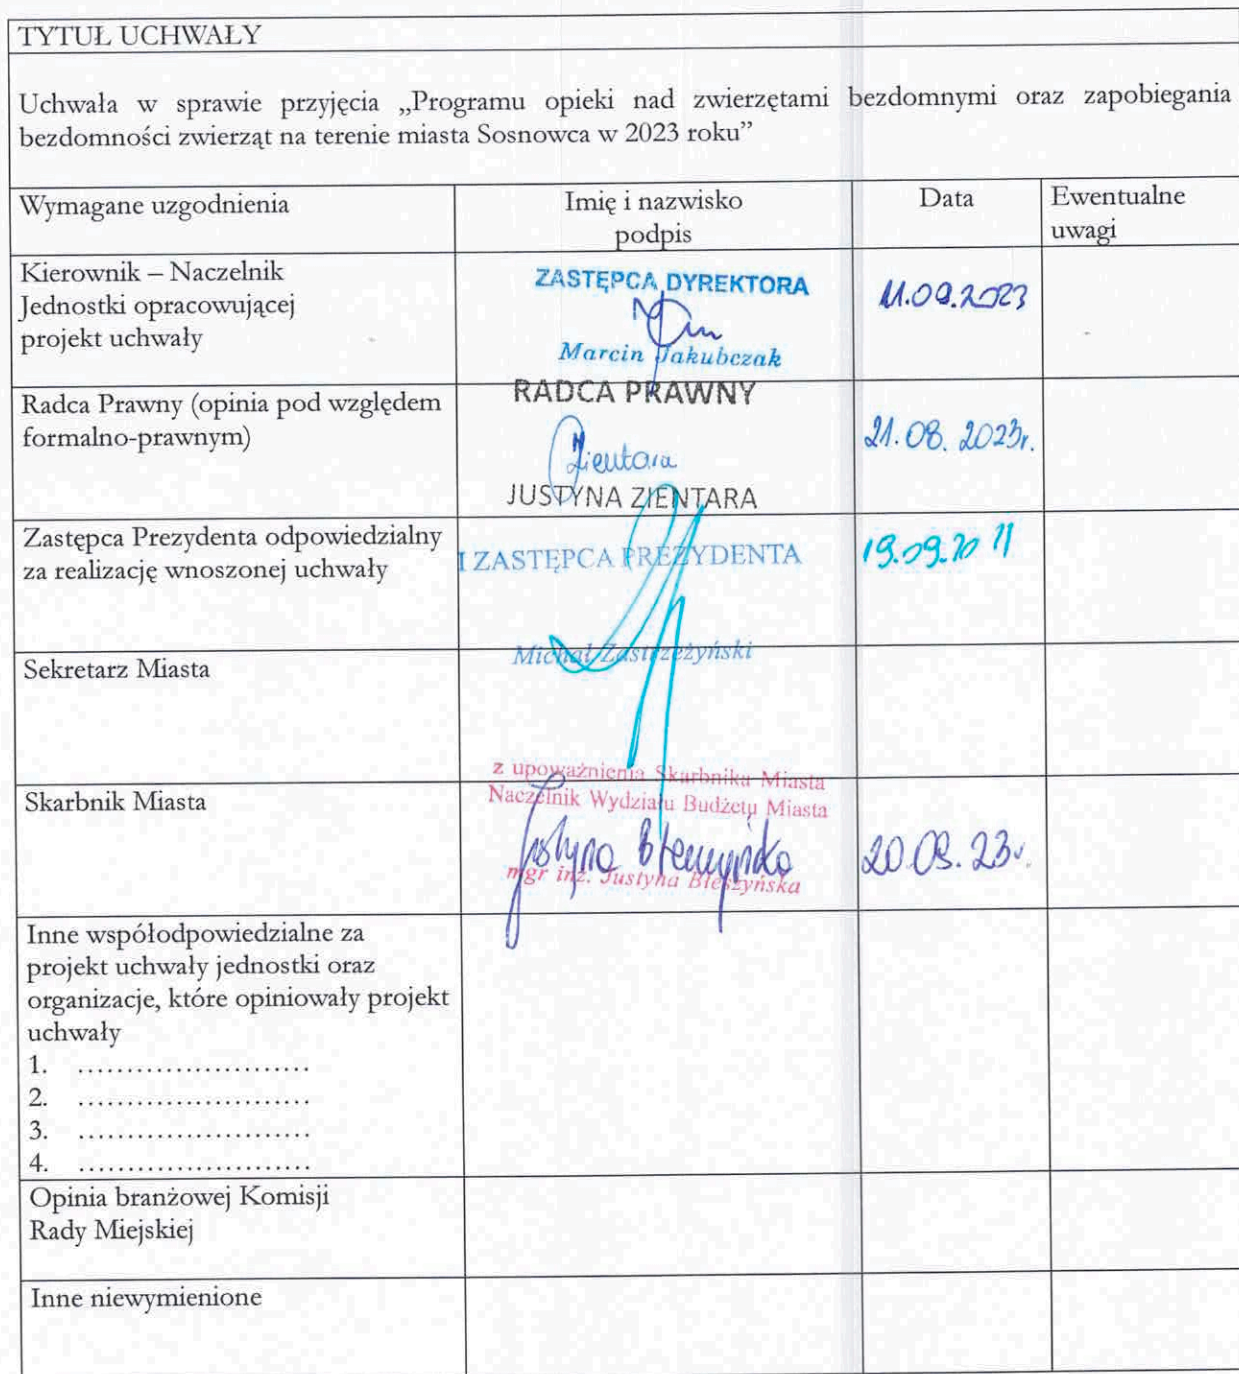 TYTUŁ UCHWAŁY
Uchwała w sprawie przyjęcia „Programu opieki nad zwierzętami bezdomnymi oraz zapobiegania
bezdomności zwierząt na terenie miasta Sosnowca w 2023 roku”
Wymagane uzgodnienia
Imię i nazwisko
podpis
Data
Ewentualne
uwagi
Kierownik – Naczelnik
Jednostki opracowującej
projekt uchwały
ZASTĘPCA DYREKTORA
Marcin Jakubczak
11.09.2023
Radca Prawny (opinia pod względem
formalno-prawnym)
RADCA PRAWNY
Zientara
JUSTYNA ZIENTARA
21.08.2023r.
Zastępca Prezydenta odpowiedzialny
za realizację wnoszonej uchwały
I ZASTĘPCA PREZYDENTA
Michał Zastrzeżyński
19.09.20
Sekretarz Miasta
Skarbnik Miasta
z upoważnienia Skarbnika Miasta
Naczelnik Wydziału Budżetu Miasta
Justyna Błeszyńska
mgr inż. Justyna Błeszyńska
Inne współodpowiedzialne za
projekt uchwały jednostki oraz
organizacje, które opiniowały projekt
uchwały
1. ........................
2. ........................
3. ........................
4. ........................
Opinia branżowej Komisji
Rady Miejskiej
Inne niewymienione